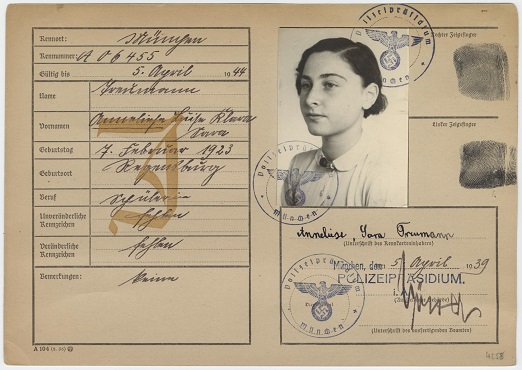 Kennort: München
Kennummer: A 06455
Gültig bis 5. April 1944
Name Treumann
Vornamen Anneliese Luise Klara
Sara
Geburtstag 7. Februar 1923
Geburtsort Regensburg
Beruf Schülerin
Unveränderliche Kennzeichen fehlen
Veränderliche Kennzeichen fehlen
Bemerkungen: keine
J
A 104
Polizeipräsidium
München
Rechter Zeigefinger
Linker Zeigefinger
Polizeipräsidium
München
Anneliese, Sara Treumann
(Unterschrift des Kennkarteninhabers)
München, den 5. April 1939
POLIZEIPRÄSIDIUM.
Polizeipräsidium
München
(Unterschrift des ausfertigenden Beamten)